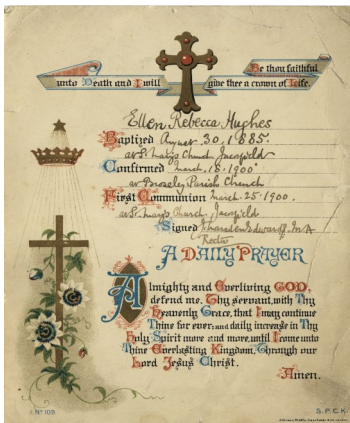 Be thou faithful
unto Death and I will give thee a crown of Life.
Ellen Rebecca Hughes
Baptized August 30, 1885.
at St. Mary's Church Jackfield
Confirmed March. 18. 1900.
at Broseley Parish Church
First Communion March. 25. 1900.
at St. Mary's Church, Jackfield
Signed M.A
Rector
A DAILY PRAYER
Almighty and Everliving GOD,
defend me, Thy servant, with Thy
Heavenly Grace, that I may continue
Thine for ever; and daily increase in Thy
Holy Spirit more and more, until I come unto
Thine Everlasting Kingdom, Through our
Lord Jesus Christ.
Amen.
No 109
S.P.C.K.